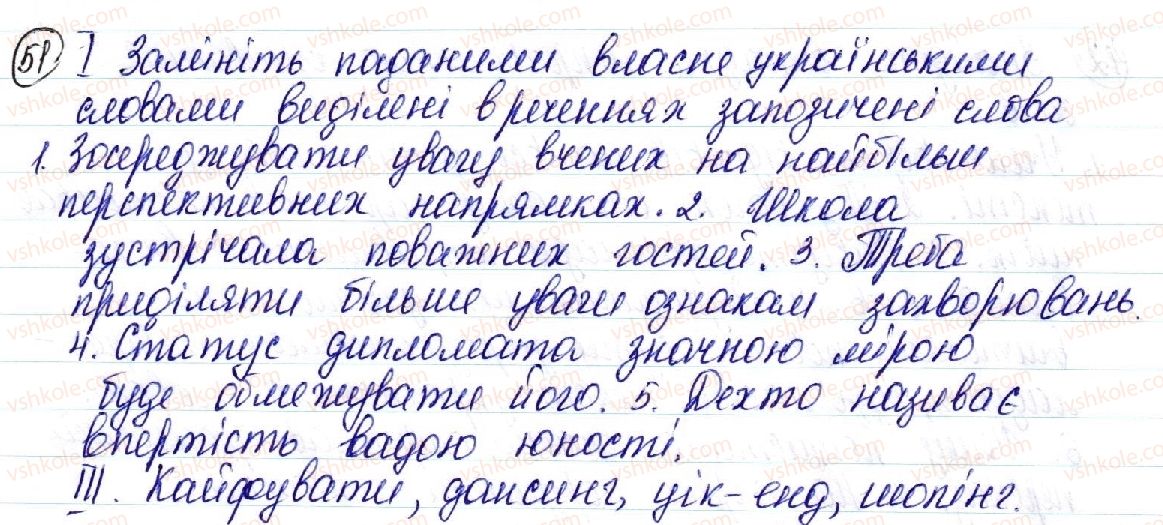 51 I Замініть поданими власне українськими
словами виділені в реченнях запозичені слова
1. Зосереджувати увагу вчених на найбільш
перспективних напрямках. 2. Школа
зустрічала поважних гостей. 3. Треба
приділяти більше уваги ознакам захворювань.
4. Статус дипломата значною мірою
буде обмежувати його. 5. Дехто називає
впертість вадою юності.
III. Кайфувати, дансинг, уік-енд, шопінг.